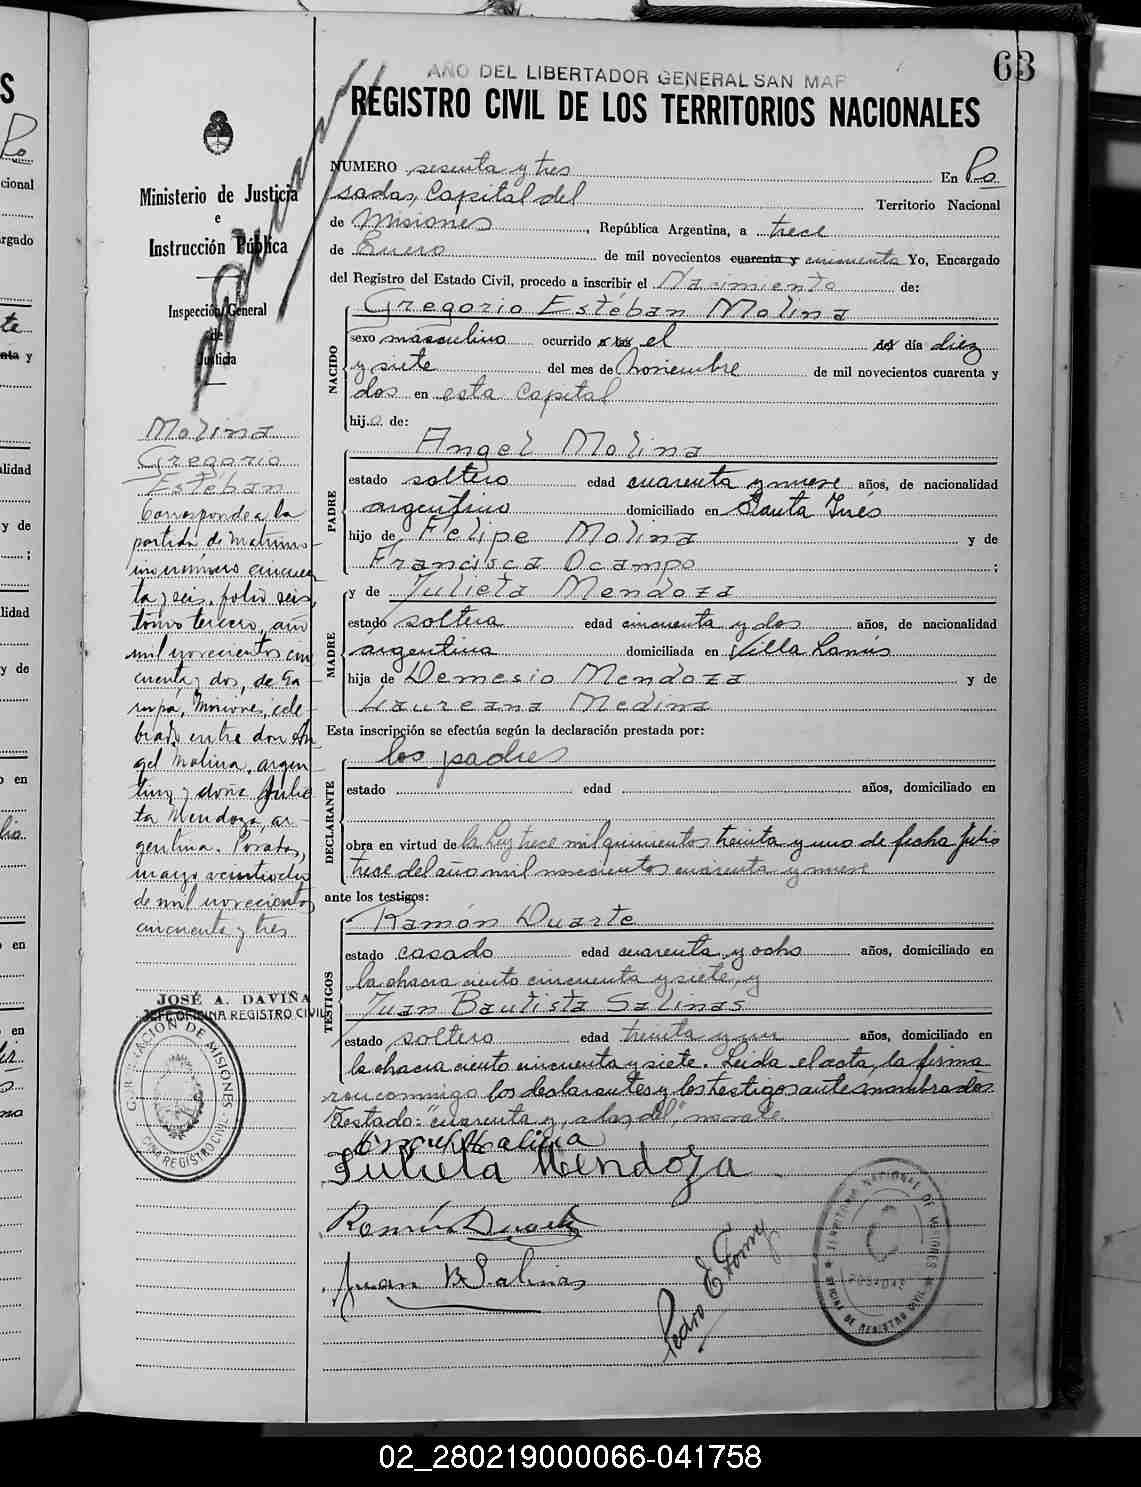 63
AÑO DEL LIBERTADOR GENERAL SAN MAR
REGISTRO CIVIL DE LOS TERRITORIOS NACIONALES
Ministerio de Justicia
e
Instrucción Pública
Inspección General
de
Justicia
Molina
Gregorio
Estéban
Corresponde a la
partida de Matrimo-
nio número cincuen
ta y seis, folio seis,
tomo tercero, año
mil novecientos cin
cuenta y dos, de Ga-
rupá, Misiones, cele-
brado entre don An
gel Molina, argen-
tino y doña Julie
ta Mendoza, ar-
gentina. Posadas,
marzo veintiocho
de mil novecientos
cincuenta y tres
JOSÉ A. DAVIÑA
JEFE OFICINA REGISTRO CIVIL
NUMERO sesenta y tres En Po
sadas, Capital del Territorio Nacional
de Misiones, República Argentina, a trece
de Enero de mil novecientos cuarenta y cincuenta Yo, Encargado
del Registro del Estado Civil, procedo a inscribir el Nacimiento de:
NACIDO
Gregorio Estéban Molina
sexo masculino ocurrido a las el del día diez
y siete del mes de Noviembre de mil novecientos cuarenta y
dos en esta Capital
hijo de:
PADRE
Angel Molina
estado soltero edad cuarenta y nueve años, de nacionalidad
argentino domiciliado en Santa Inés
hijo de Felipe Molina y de
Francisca Ocampo ;
MADRE
y de Julieta Mendoza
estado soltera edad cincuenta y dos años, de nacionalidad
argentina domiciliada en Villa Lanús
hija de Demesio Mendoza y de
Laureana Medina
Esta inscripción se efectúa según la declaración prestada por:
DECLARANTE
los padres
estado edad años, domiciliado en
obra en virtud de la Ley trece mil quinientos treinta y uno de fecha Julio
trece del año mil novecientos cuarenta y nueve
ante los testigos:
TESTIGOS
Ramón Duarte
estado casado edad cuarenta y ocho años, domiciliado en
la chacra ciento cincuenta y siete, y
Juan Bautista Salinas
estado soltero edad treinta y un años, domiciliado en
la chacra ciento cincuenta y siete. Leida el acta, la firma-
ron conmigo los declarantes y los testigos ante nombrados.
Testado: "cuarenta y, a las, del", no vale.
Angel Molina
Julieta Mendoza
Ramón Duarte
Juan B. Salinas
Pedro E
TERRITORIO NACIONAL DE MISIONES
POSADAS
OFICINA DE REGISTRO CIVIL
02_280219000066-041758